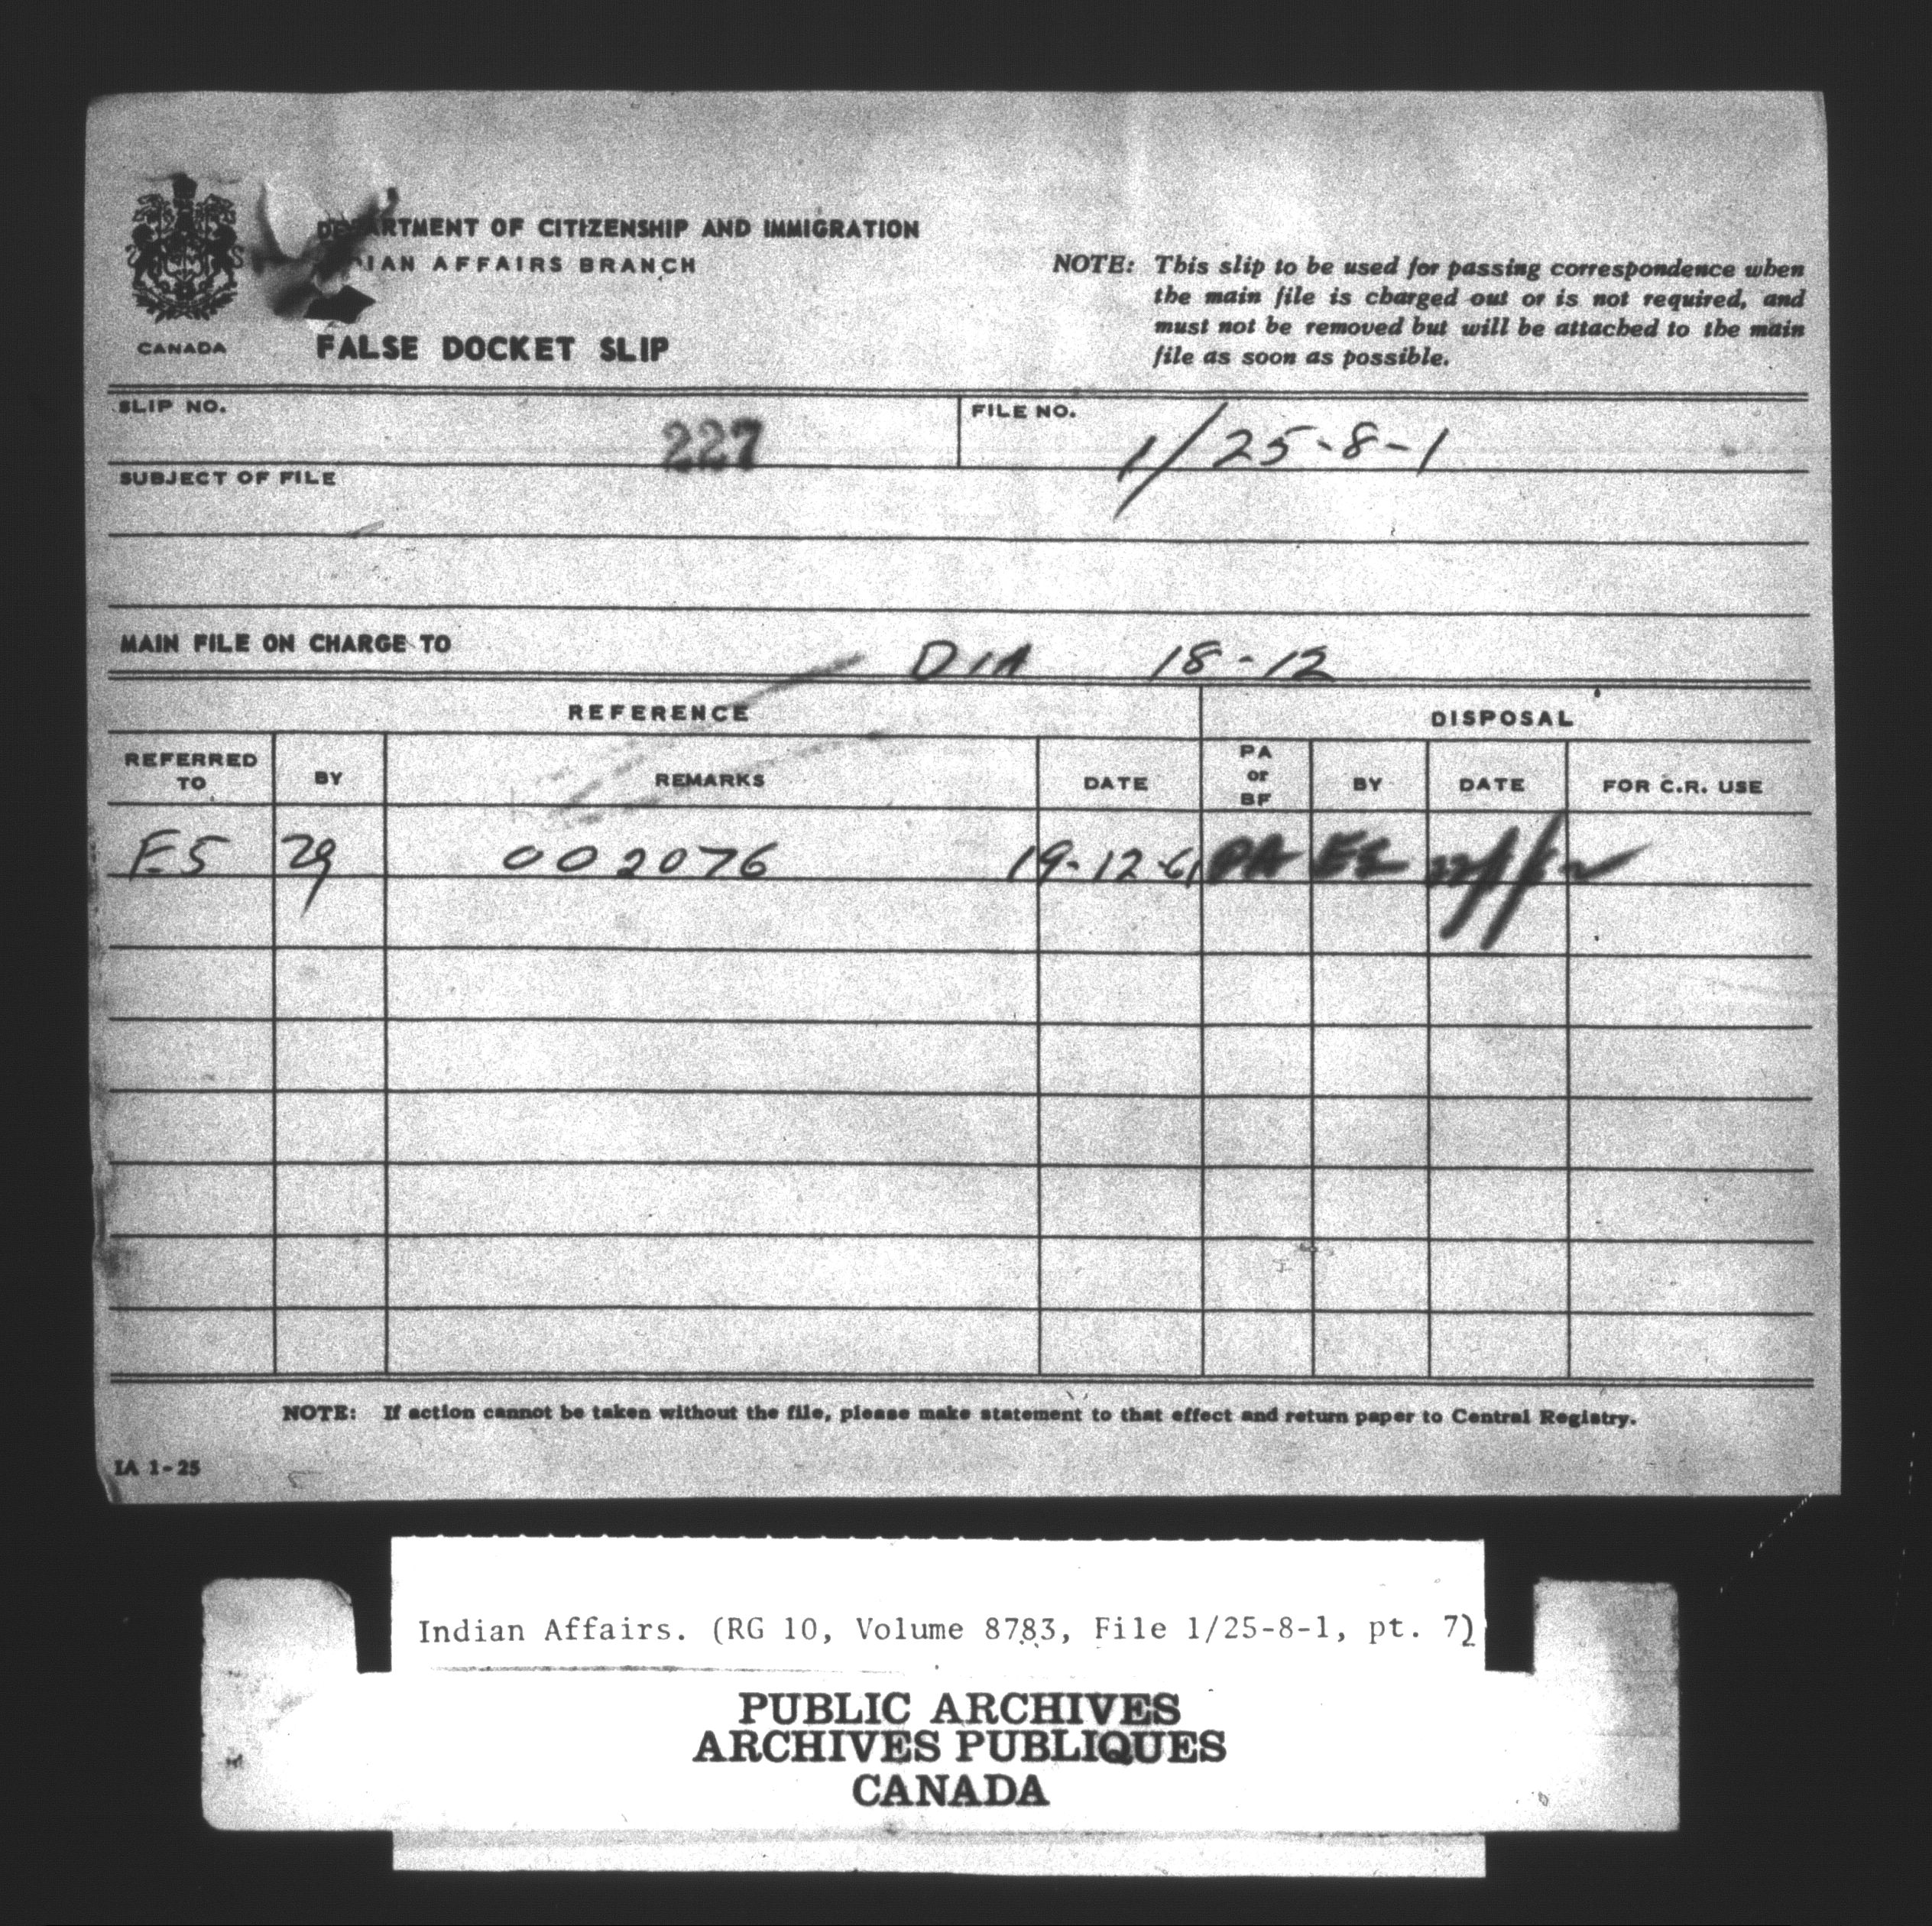 DEPARTMENT OF CITIZENSHIP AND IMMIGRATION
IAN AFFAIRS BRANCH
CANADA
FALSE DOCKET SLIP
NOTE: This slip to be used for passing correspondence when
the main file is charged out or is not required, and
must not be removed but will be attached to the main
file as soon as possible.
SLIP NO. 227
FILE NO. 1/25-8-1
SUBJECT OF FILE
MAIN FILE ON CHARGE TO DIA 18-12
REFERENCE DISPOSAL
REFERRED TO BY REMARKS DATE PA or BF BY DATE FOR C.R. USE
ES 29 002076 19-12-61 PA ES
NOTE: If action cannot be taken without the file, please make statement to that effect and return paper to Central Registry.
IA 1-25
Indian Affairs. (RG 10, Volume 8783, File 1/25-8-1, pt. 7)
PUBLIC ARCHIVES
ARCHIVES PUBLIQUES
CANADA